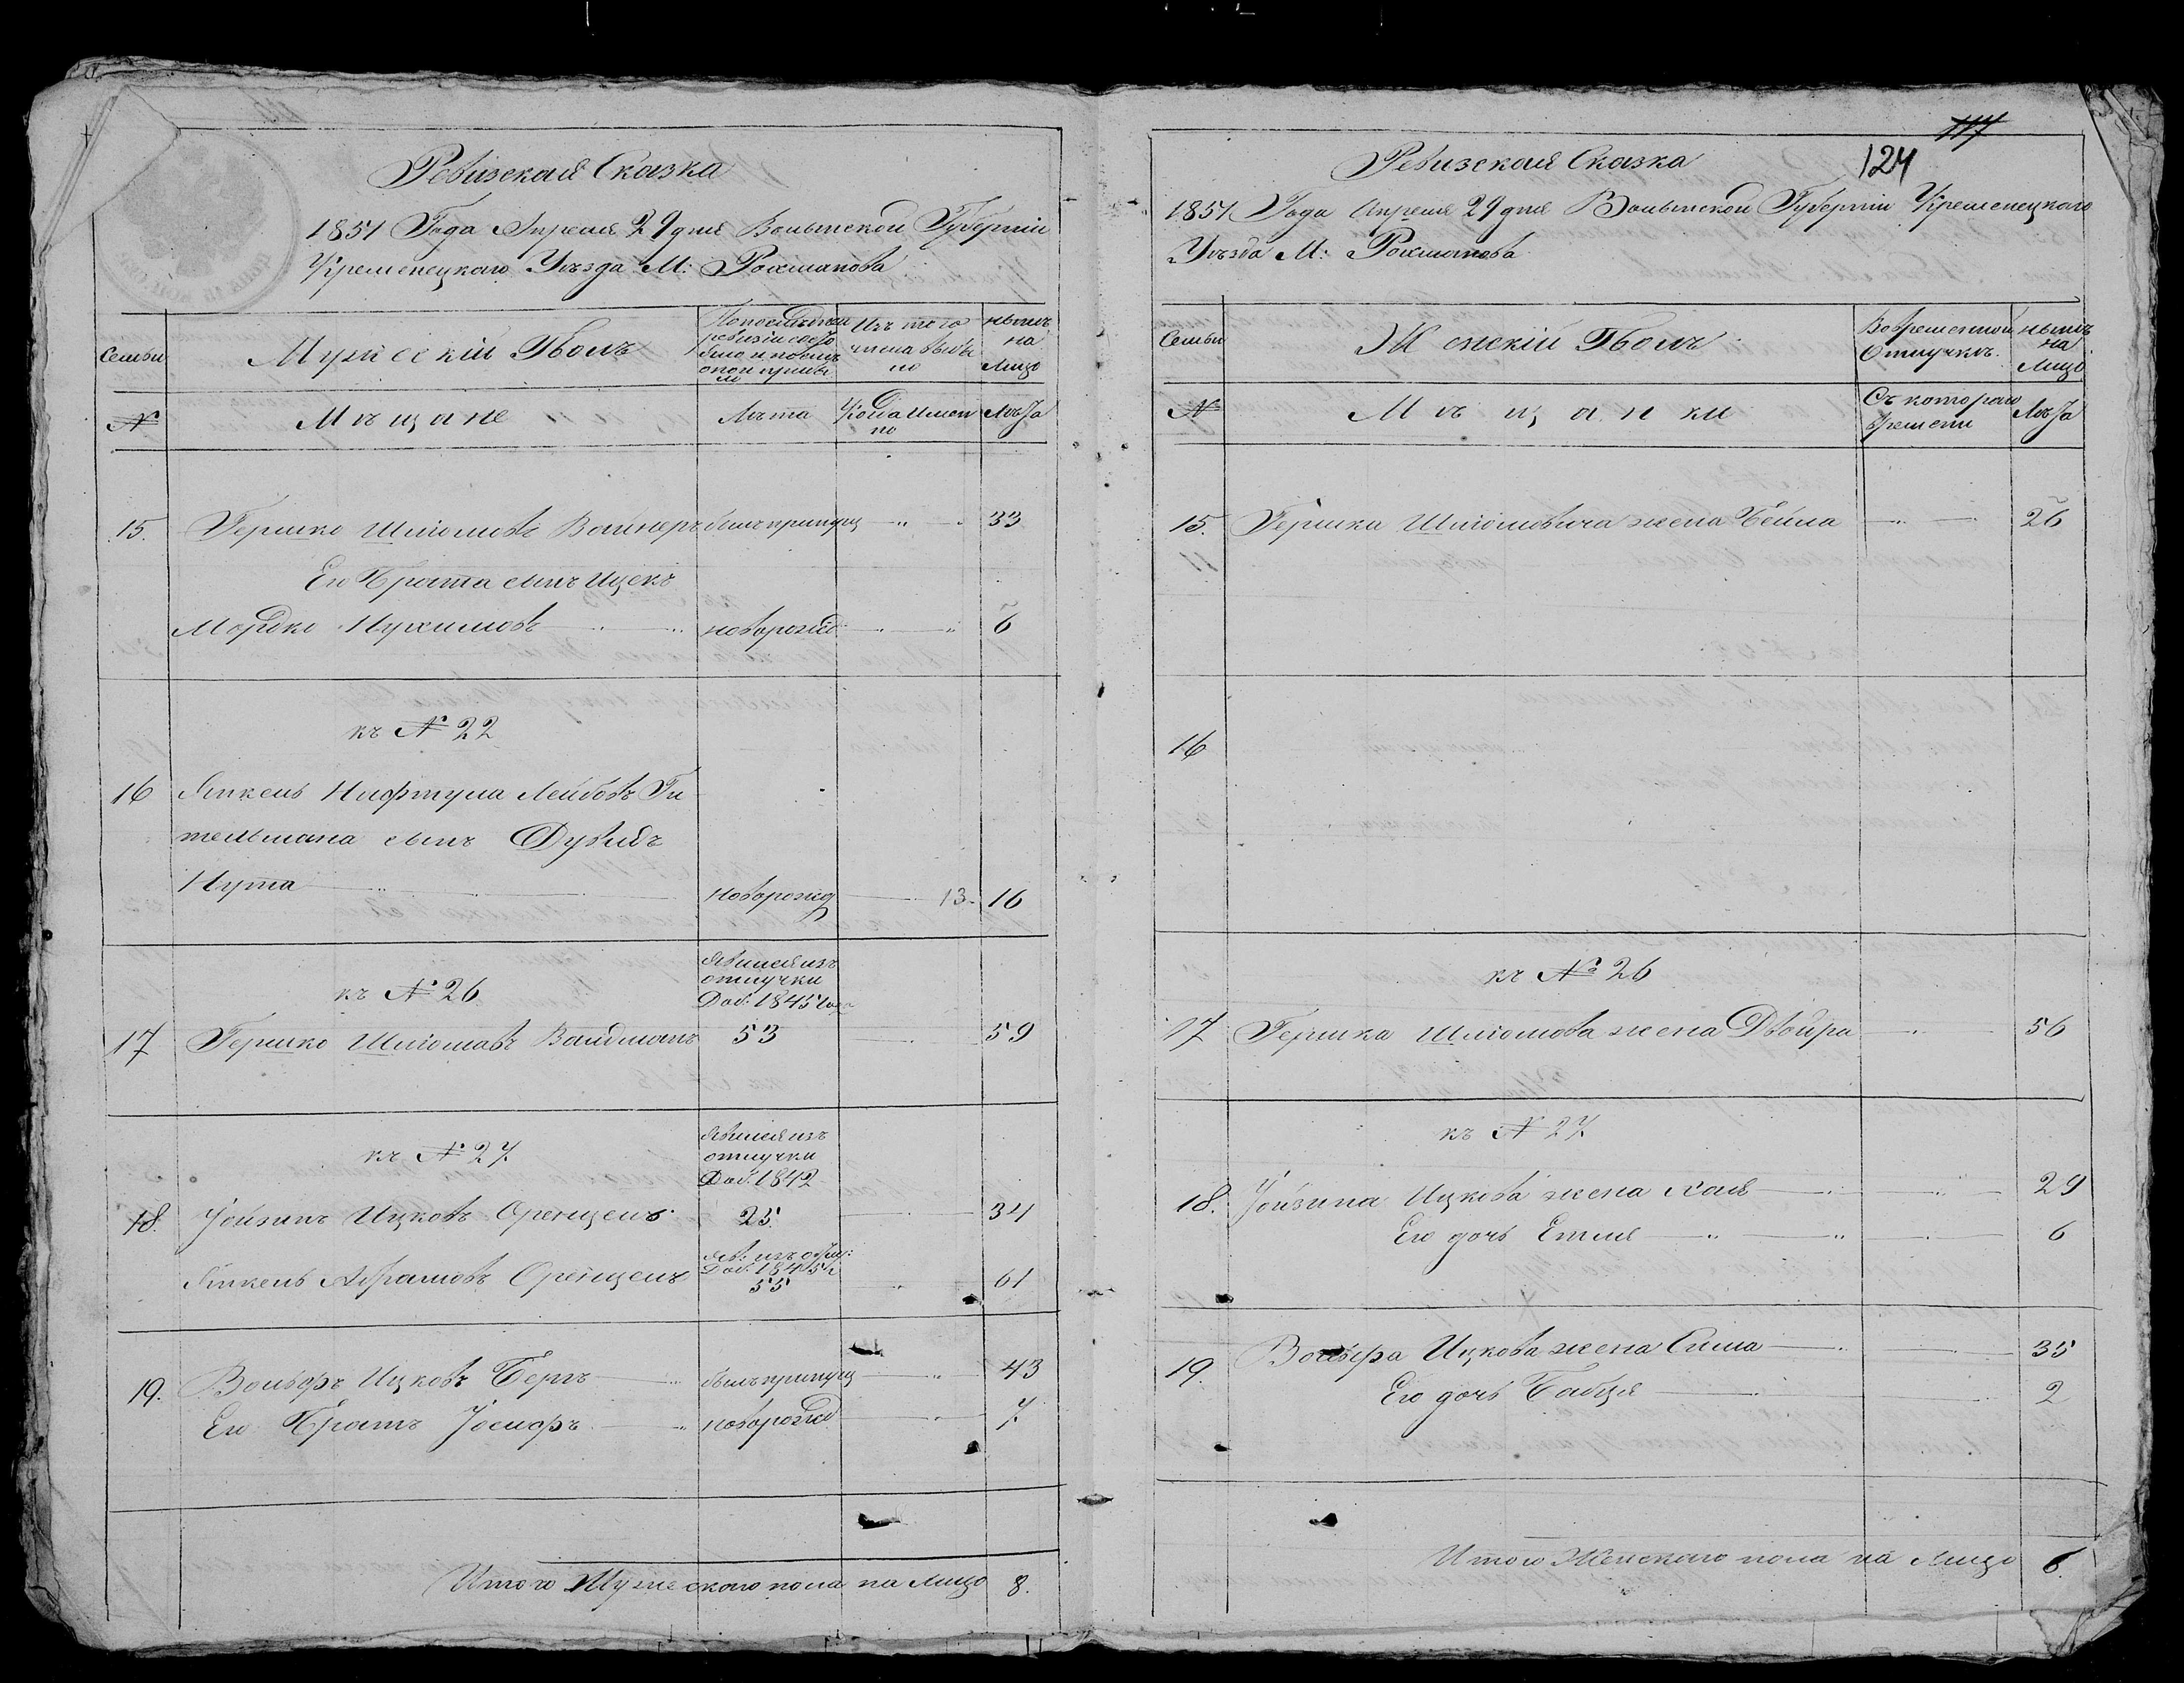 Ревизская Сказка
1851 Года Апреля 29 дня Волынской Губернии
Кременецкаго Уезда М: Рохманова
Семьи
Мужескій Полъ
По последней ревизіи состояло и после оной прибыло
Изъ того числа выбыло
ныне на лицо
№
Мѣщане
Лѣта
Когда именно
Лѣта
15.
Гершко Шліомовъ Вайнеръ
былъ пропущ
33
Его Брата сынъ Ицекъ
Мордко Нухимовъ
новорожд
6
къ № 22
16
Янкель Нафтула Лейбовъ Ги
тельмана сынъ Дувидъ
Нута
новорожд
13.
16
къ № 26
явился изъ
отлучки
Доб: 1845 года
17
Гершко Шліомовъ Вайдманъ
53
59
къ № 27
явился изъ
отлучки
Доб: 1842
18.
Іойзипъ Ицковъ Оренцель
25
34
яв: изъ отлуч:
Доб: 1845 г
Янкель Абрамовъ Оренцель
55
61
19.
Вольфъ Ицковъ Бергъ
былъ пропущ
43
Его Братъ Іосифъ
новорожд
7
Итого Мужескаго пола на лицо 8.
117
124
Ревизская Сказка
1851 Года Апреля 29 дня Волынской Губерніи Кременецкаго
Уѣзда М: Рохманова
Семьи
Женскій Полъ
Во временной Отлучкѣ
нынѣ на лицо
№
Мѣщанки
Съ котораго времени
Лѣта
15.
Гершка Шліомовича жена Бейла
26
16
къ № 26
17
Гершка Шліомова жена Двойра
56
къ № 27
18.
Іойзипа Ицкова жена Хая
29
Его дочь Етля
6
19.
Вольфа Ицкова жена Сима
35
Его дочь Бабця
2
Итого Женскаго пола на лицо 6.